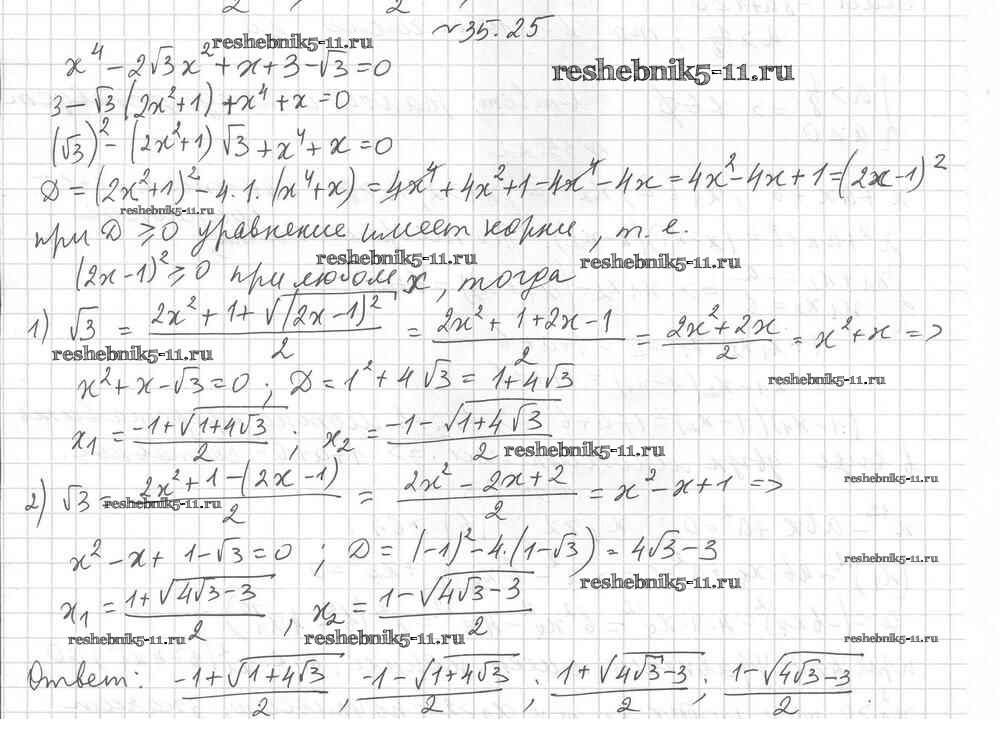 № 35.25
reshebnik5-11.ru
x⁴ − 2√3x² + x + 3 − √3 = 0
reshebnik5-11.ru
3 − √3(2x²+1) + x⁴ + x = 0
(√3)² − (2x²+1)√3 + x⁴ + x = 0
D = (2x²+1)² − 4·1·(x⁴+x) = 4x⁴ + 4x² + 1 − 4x⁴ − 4x = 4x² − 4x + 1 = (2x−1)²
reshebnik5-11.ru
при D ≥ 0 уравнение имеет корни, т.е.
reshebnik5-11.ru reshebnik5-11.ru
(2x−1)² ≥ 0 при любом x, тогда
1) √3 = (2x² + 1 + √(2x−1)²)/2 = (2x² + 1 + 2x − 1)/2 = (2x² + 2x)/2 = x² + x =>
reshebnik5-11.ru
x² + x − √3 = 0 ; D = 1² + 4√3 = 1 + 4√3
reshebnik5-11.ru
x₁ = (−1 + √(1+4√3))/2 ; x₂ = (−1 − √(1+4√3))/2
reshebnik5-11.ru
2) √3 = (2x² + 1 − (2x − 1))/2 = (2x² − 2x + 2)/2 = x² − x + 1 =>
reshebnik5-11.ru reshebnik5-11.ru
x² − x + 1 − √3 = 0 ; D = (−1)² − 4·(1−√3) = 4√3 − 3
reshebnik5-11.ru reshebnik5-11.ru
x₁ = (1 + √(4√3−3))/2 , x₂ = (1 − √(4√3−3))/2
reshebnik5-11.ru reshebnik5-11.ru reshebnik5-11.ru
Ответ: (−1+√(1+4√3))/2 , (−1−√(1+4√3))/2 ; (1+√(4√3−3))/2 ; (1−√(4√3−3))/2 .